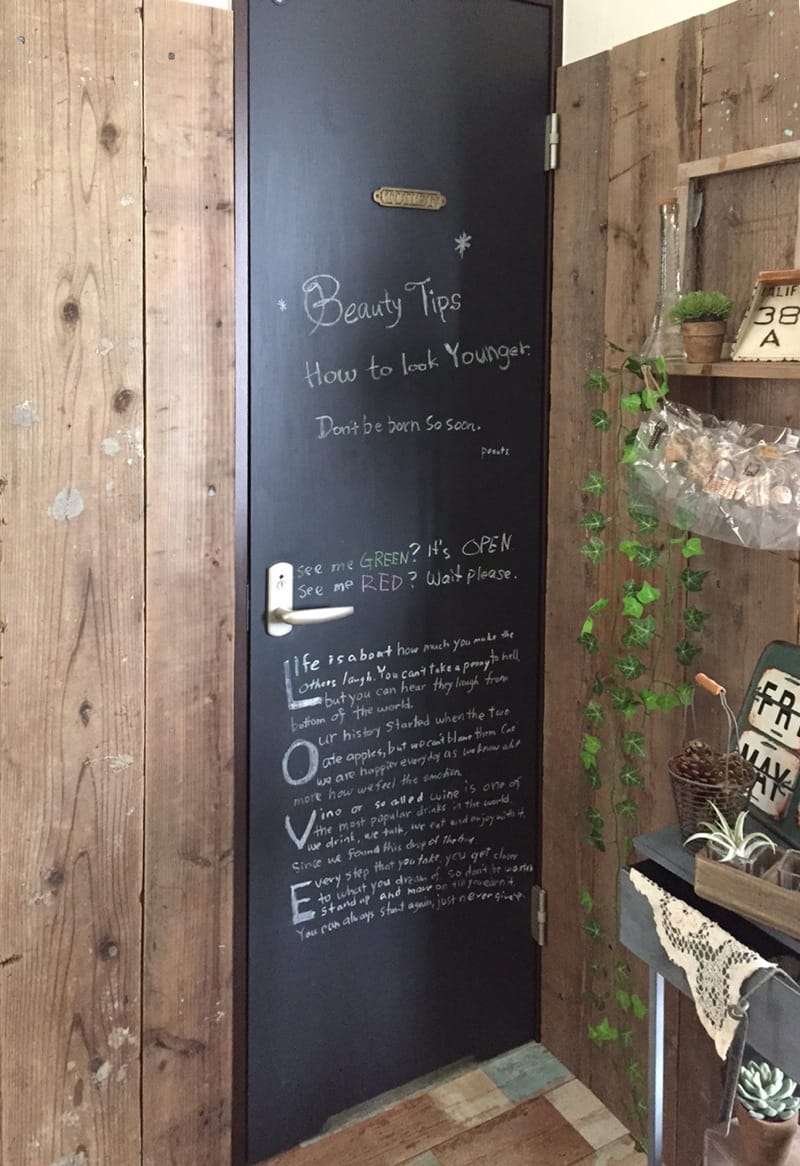 Beauty Tips
How to look Younger.
Don't be born so soon.
see me GREEN? It's OPEN
see me RED? Wait please.
Life is about how much you make the
others laugh. You can't take a penny to hell,
but you can hear they laugh from
bottom of the world.
Our history started when the two
ate apples, but we can't blame them Cuz
we are happier everyday as we know
more how we feel the emotion.
Vino or so called wine is one of
the most popular drinks in the world.
we drink, we talk, we eat and enjoy with it.
Since we found this drop of
Every step that you take, you get closer
to what you dream of so don't be
stand up and move on
You can always start again, just never give
CALIF
38
A
FRI
MAY